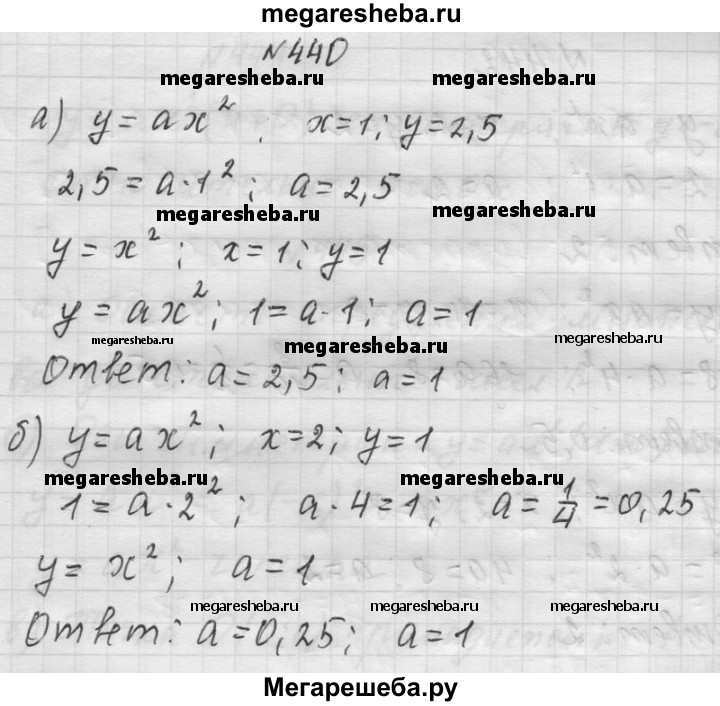 megaresheba.ru
N440
megaresheba.ru megaresheba.ru
а) y = ax²; x=1; y=2,5
2,5 = a·1²; a=2,5
megaresheba.ru megaresheba.ru
y = x²; x=1; y=1
y = ax²; 1=a·1; a=1
megaresheba.ru megaresheba.ru megaresheba.ru
Ответ: a=2,5; a=1
б) y=ax²; x=2; y=1
megaresheba.ru megaresheba.ru
1=a·2²; a·4=1; a=1/4=0,25
y= x²; a=1
megaresheba.ru megaresheba.ru megaresheba.ru
Ответ: a=0,25; a=1
Мегарешеба.ру